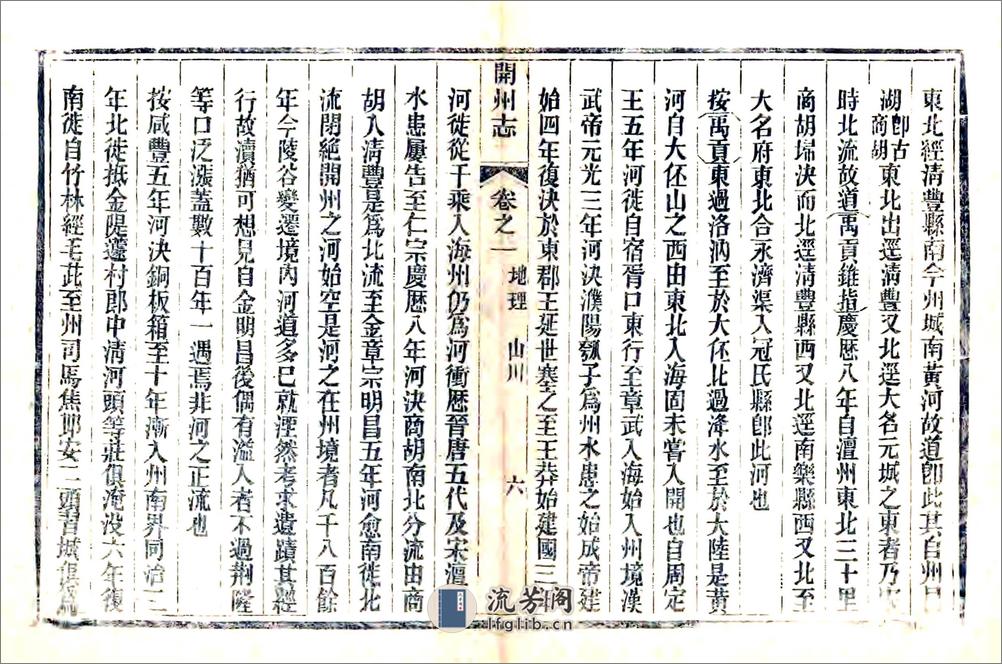 東北經清豐縣南今州城南黃河故道卽此其自州
湖卽古商胡東北出逕清豐又北逕大名元城之東者乃
時北流故道禹貢錐指慶歷八年自澶州東北三十里
商胡埽決而北逕清豐縣西又北逕南樂縣西又北至
大名府東北合永濟渠入冠氏縣卽此河也
按禹貢東過洛汭至於大伾北過洚水至於大陸是黃
河自大伾山之西由東北入海固未嘗入開也自周定
王五年河徙自宿胥口東行至章武入海始入州境漢
武帝元光三年河決濮陽瓠子爲州水患之始成帝建
始四年復決於東郡王延世塞之至王莽始建國三年
開州志 卷之一 地理 山川 六
河徙從千乘入海州仍爲河衝歷晉唐五代及宋澶
水患屢告至仁宗慶歷八年河決商胡南北分流由商
胡入清豐是爲北流至金章宗明昌五年河愈南徙北
流閉絕開州之河始空是河之在州境者凡千八百餘
年今陵谷變遷境內河道多已就湮然考求遺蹟其經
行故瀆猶可想見自金明昌後偶有濫入者不過荆隆
等口泛漲蓋數十百年一遇焉非河之正流也
按咸豐五年河決銅板箱至十年漸入州南界同治二
年北徙抵金隄邊村郎中清河頭等莊俱淹没六年復
南徙自竹林經毛茈至州司馬焦邱安二頭習城集
流芳阁
lfglib.cn